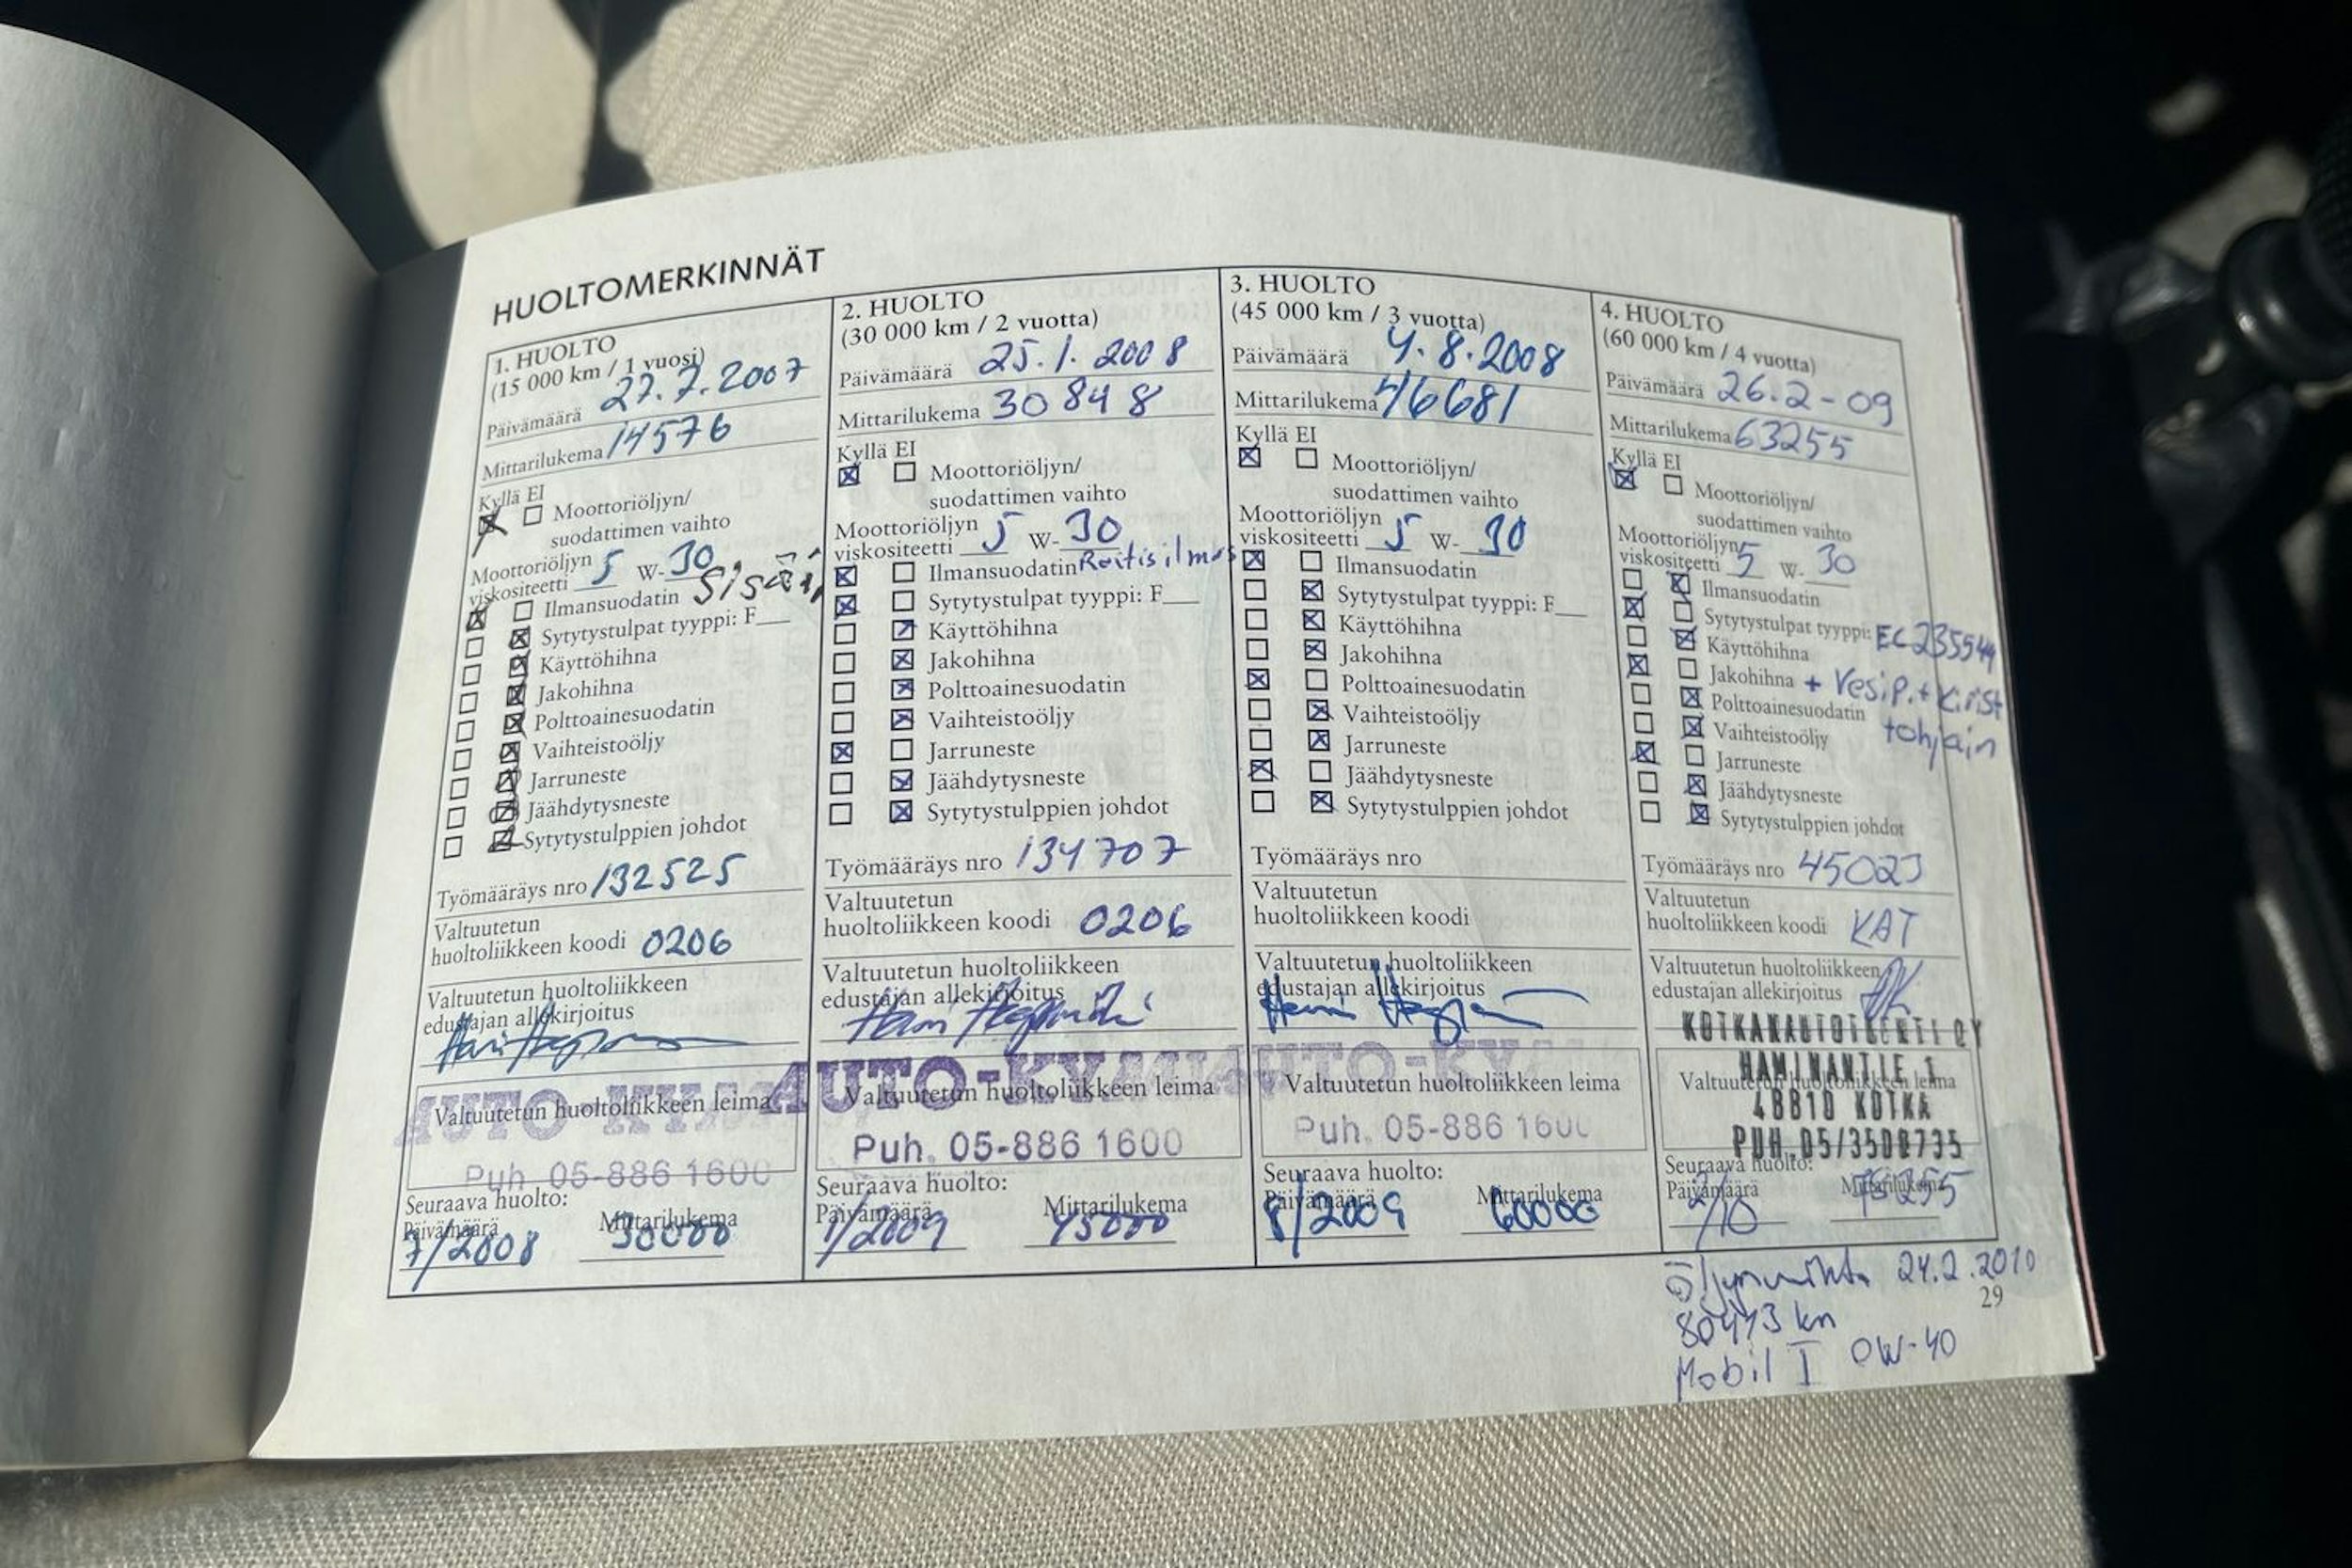 HUOLTOMERKINNÄT
1. HUOLTO
(15 000 km / 1 vuosi)
Päivämäärä 27.7.2007
Mittarilukema 14576
Kyllä EI
Moottoriöljyn/
suodattimen vaihto
Moottoriöljyn
viskositeetti 5 W-30
Ilmansuodatin
Sytytystulpat tyyppi: F
Käyttöhihna
Jakohihna
Polttoainesuodatin
Vaihteistoöljy
Jarruneste
Jäähdytysneste
Sytytystulppien johdot
Työmääräys nro 132525
Valtuutetun
huoltoliikkeen koodi 0206
Valtuutetun huoltoliikkeen
edustajan allekirjoitus
AUTO-KYMI
Valtuutetun huoltoliikkeen leima
Puh. 05-886 1600
Seuraava huolto:
Päivämäärä Mittarilukema
7/2008 30000
2. HUOLTO
(30 000 km / 2 vuotta)
Päivämäärä 25.1.2008
Mittarilukema 30848
Kyllä EI
Moottoriöljyn/
suodattimen vaihto
Moottoriöljyn
viskositeetti 5 W-30
Ilmansuodatin
Sytytystulpat tyyppi: F
Käyttöhihna
Jakohihna
Polttoainesuodatin
Vaihteistoöljy
Jarruneste
Jäähdytysneste
Sytytystulppien johdot
Työmääräys nro 134707
Valtuutetun
huoltoliikkeen koodi 0206
Valtuutetun huoltoliikkeen
edustajan allekirjoitus
AUTO-KYMI
Valtuutetun huoltoliikkeen leima
Puh. 05-886 1600
Seuraava huolto:
Päivämäärä Mittarilukema
1/2009 45000
3. HUOLTO
(45 000 km / 3 vuotta)
Päivämäärä 4.8.2008
Mittarilukema 46681
Kyllä EI
Moottoriöljyn/
suodattimen vaihto
Moottoriöljyn
viskositeetti 5 W-30
Ilmansuodatin
Sytytystulpat tyyppi: F
Käyttöhihna
Jakohihna
Polttoainesuodatin
Vaihteistoöljy
Jarruneste
Jäähdytysneste
Sytytystulppien johdot
Työmääräys nro
Valtuutetun
huoltoliikkeen koodi
Valtuutetun huoltoliikkeen
edustajan allekirjoitus
AUTO-KY
Valtuutetun huoltoliikkeen leima
Puh. 05-886 1600
Seuraava huolto:
Päivämäärä Mittarilukema
8/2009 60000
4. HUOLTO
(60 000 km / 4 vuotta)
Päivämäärä 26.2-09
Mittarilukema 63255
Kyllä EI
Moottoriöljyn/
suodattimen vaihto
Moottoriöljyn
viskositeetti 5 W-30
Ilmansuodatin
Sytytystulpat tyyppi:
Käyttöhihna
Jakohihna + Vesip. + Kirist
Polttoainesuodatin
Vaihteistoöljy tohjain
Jarruneste
Jäähdytysneste
Sytytystulppien johdot
Työmääräys nro 45023
Valtuutetun
huoltoliikkeen koodi KAT
Valtuutetun huoltoliikkeen
edustajan allekirjoitus
HAMINANTIE 1
Valtuutetun huoltoliikkeen leima
48810 KOTKA
PUH.05/3508735
Seuraava huolto:
Päivämäärä Mittarilukema
2/10
Öljynvaihto 24.2.2010
29
km
Mobil 1 0W-40